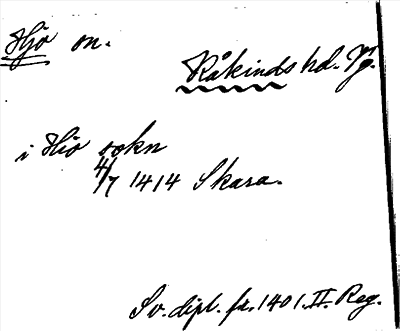 Hjo sn.
Kåkinds hd. Vg.
i Hio sokn
4/7 1414 Skara.
Sv. dipl. fr. 1401. II. Reg.